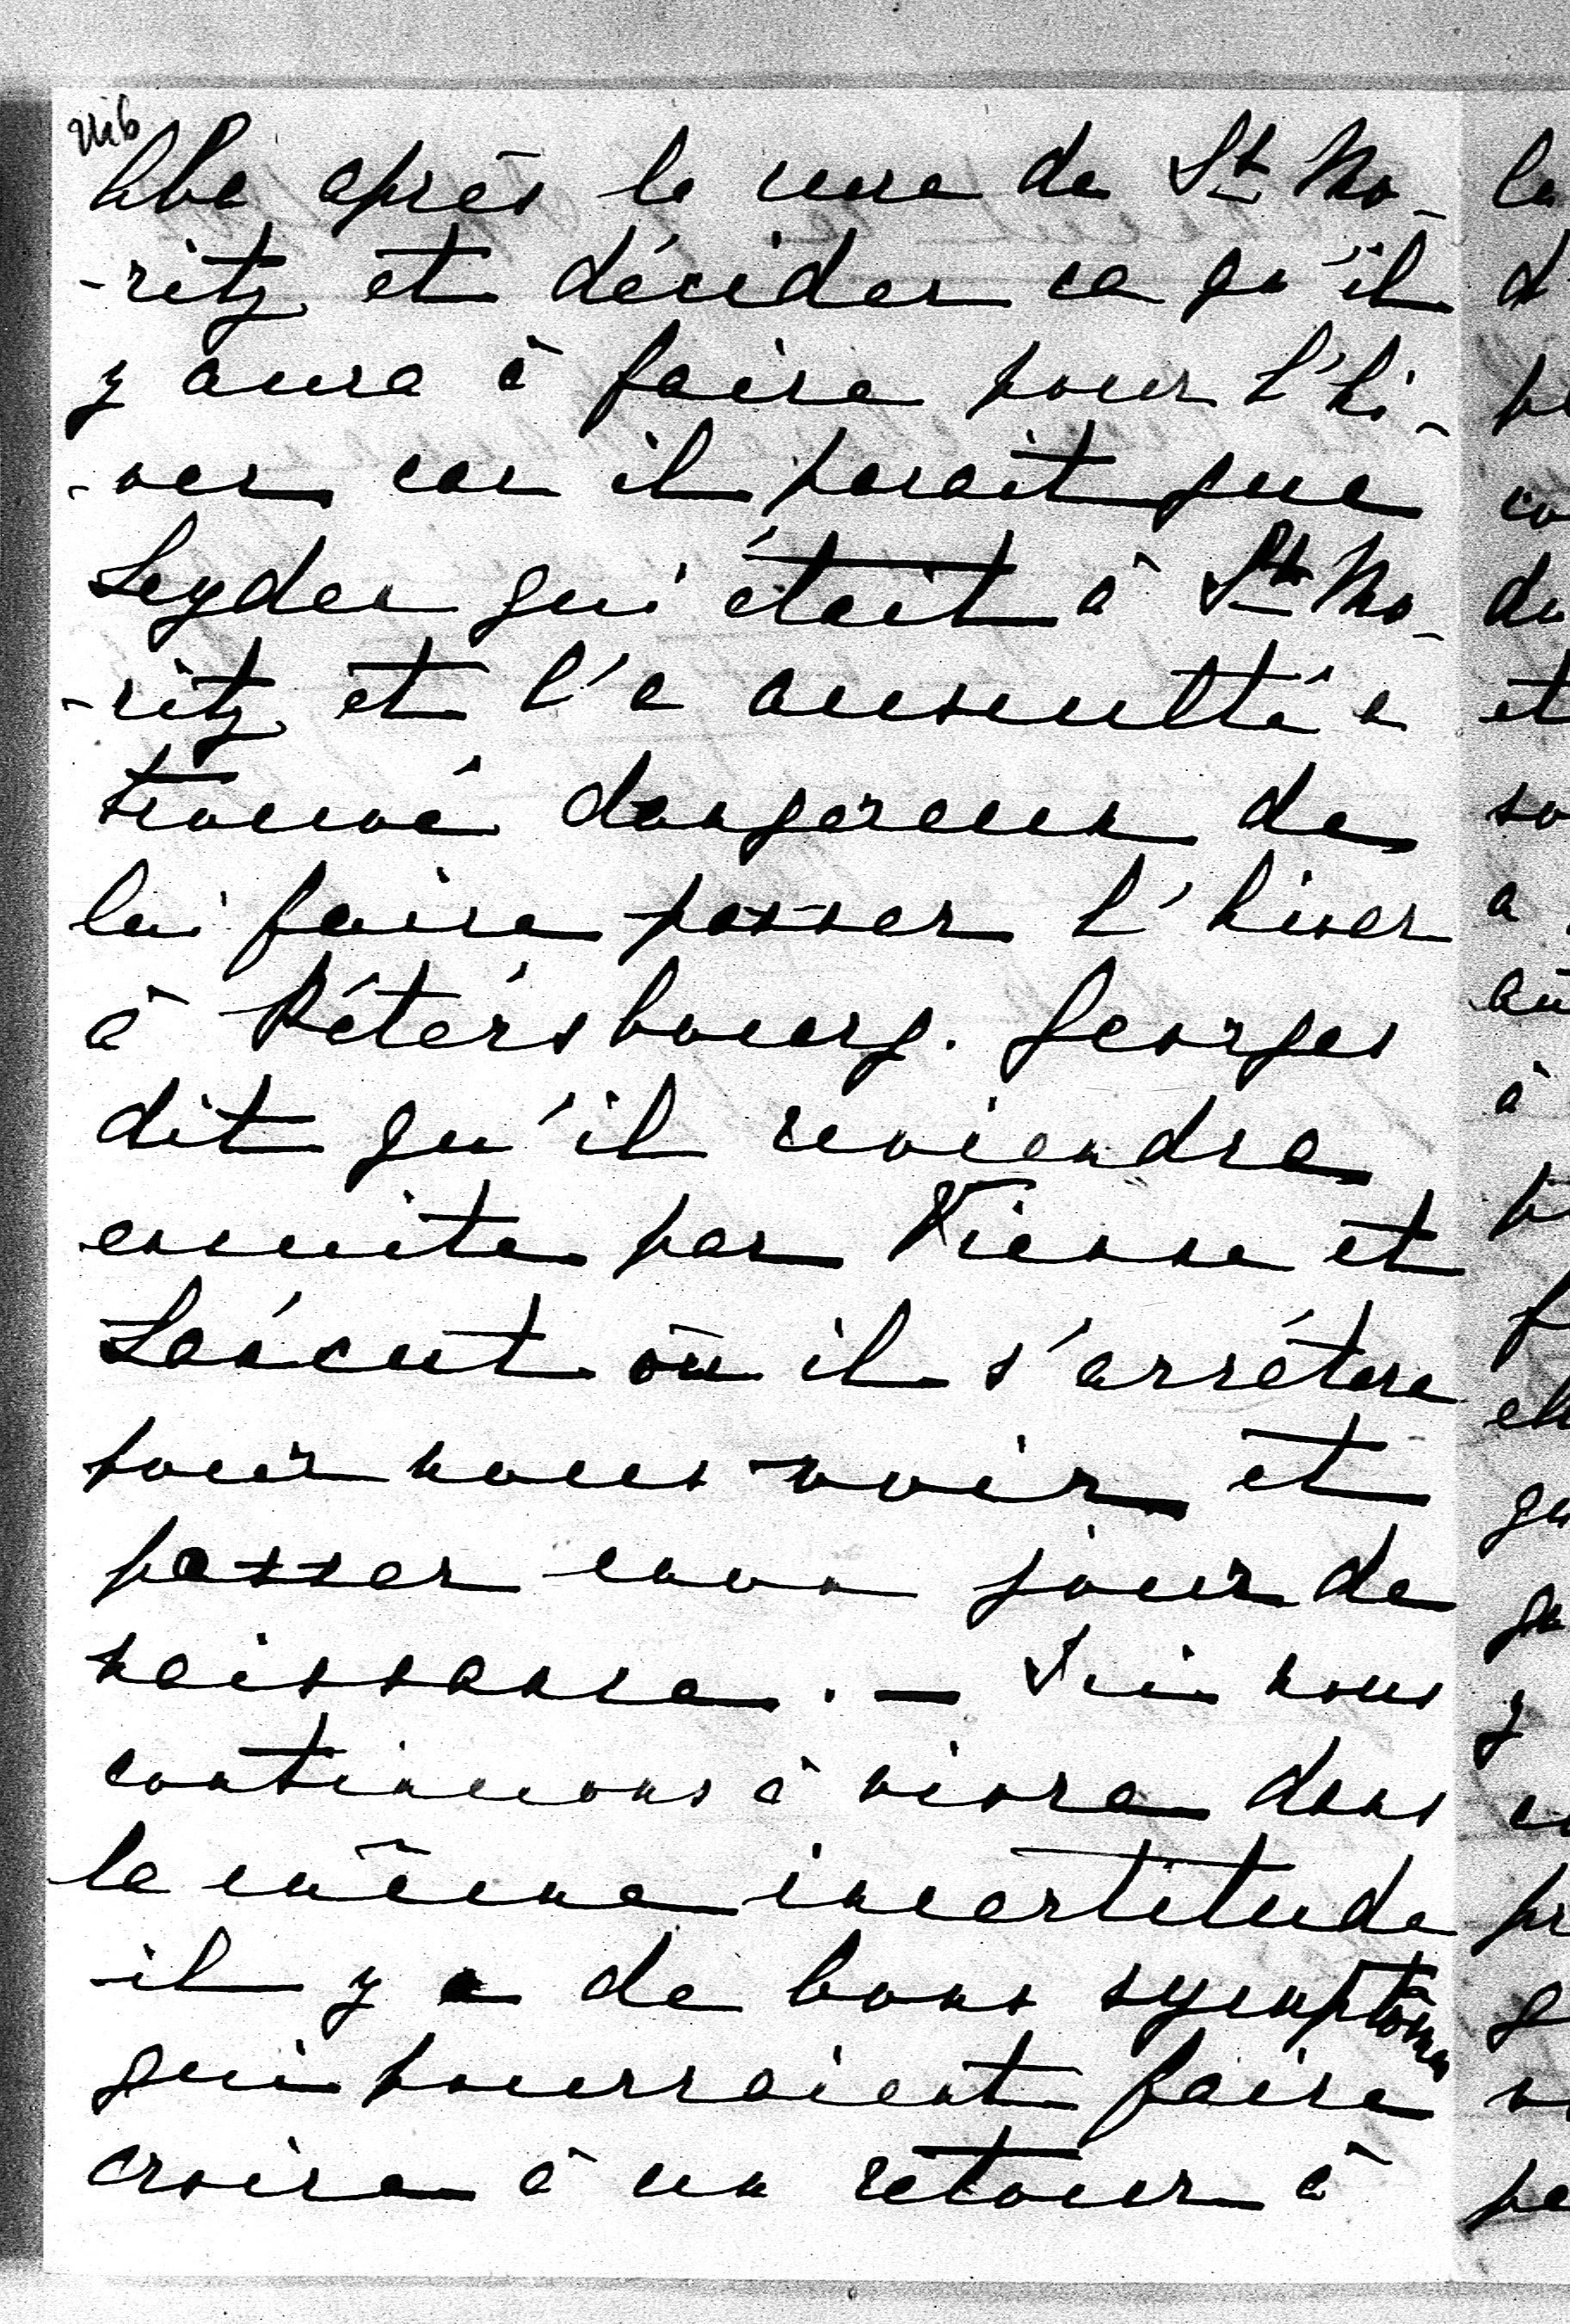 après la cure de St Mo-
-ritz et décider ce qu'il
y aura à faire pour l'hi-
-ver car il parait que
Leyden qui était à St Mo-
-ritz et l'a ausculté a
trouvé dangereux de
lui faire passer l'hiver
à Pétersbourg. Georges
dit qu'il reviendra
ensuite par Vienne et
Łańcut où il s'arrêtera
pour nous voir et
passer mon jour de
naissance. — Ici nous
continuons à vivre dans
la même incertitude
il y a de bons symptôme
qui pourraient faire
croire à un retour à